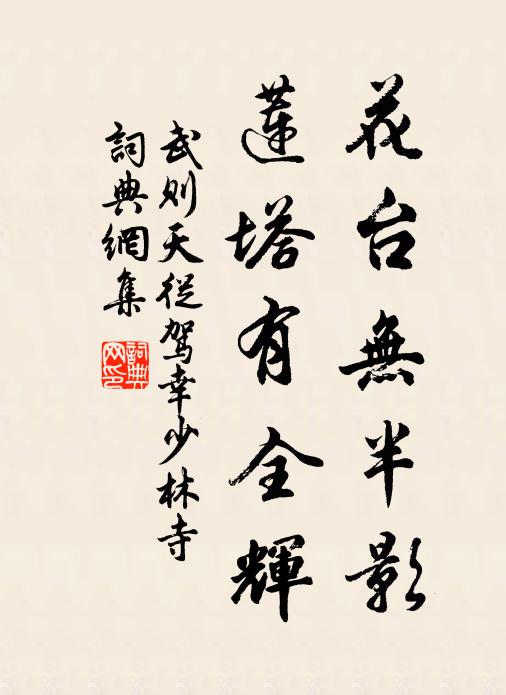 花台無半影
蓮塔有全輝
武則天從駕幸少林寺
詞典網集
詞典
网印